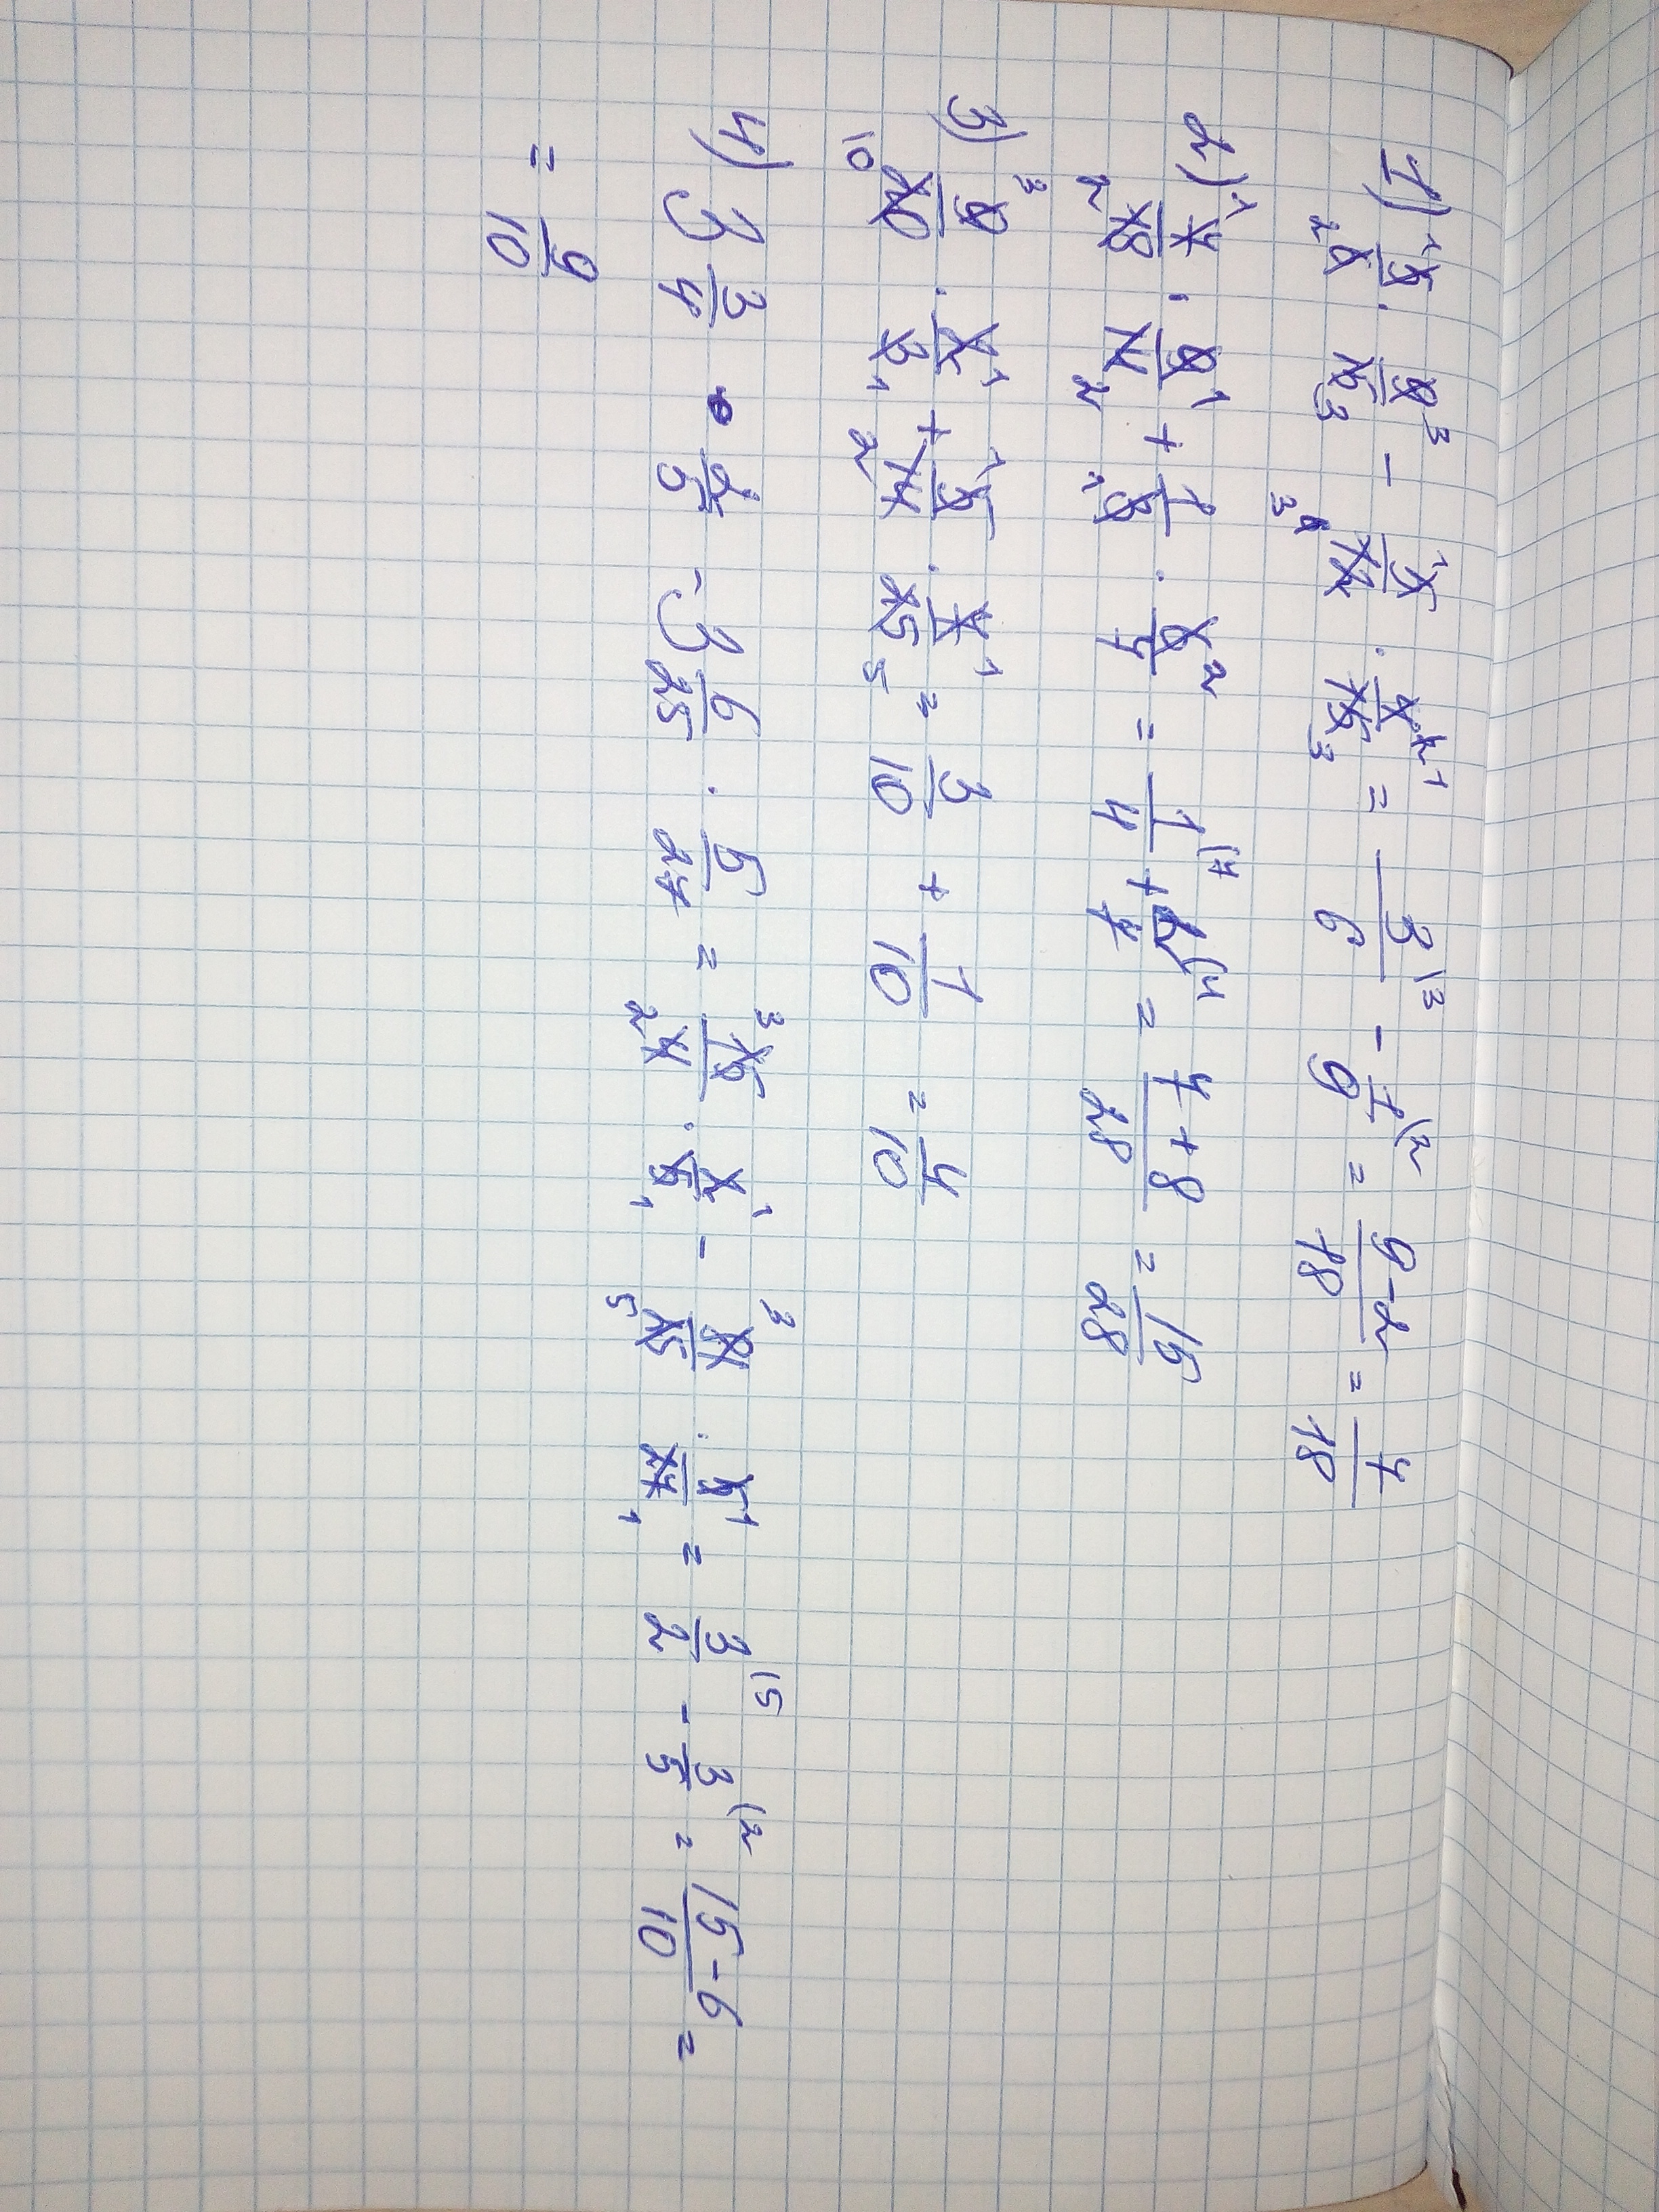 1) 5/6 · 9/15 - 5/12 · 4/15 = 3/6 - 1/9 = 9-2/18 = 7/18
2) 7/18 · 9/14 + 1/8 · 8/7 = 1/4 + 2/7 = 7+8/28 = 15/28
3) 9/20 · 2/3 + 7/14 · 5/25 = 3/10 + 1/10 = 4/10
4) 3 3/4 · 2/5 - 3 6/25 · 5/27 = 15/4 · 2/5 - 81/25 · 5/27 = 3/2 - 3/5 = 15-6/10 =
= 9/10